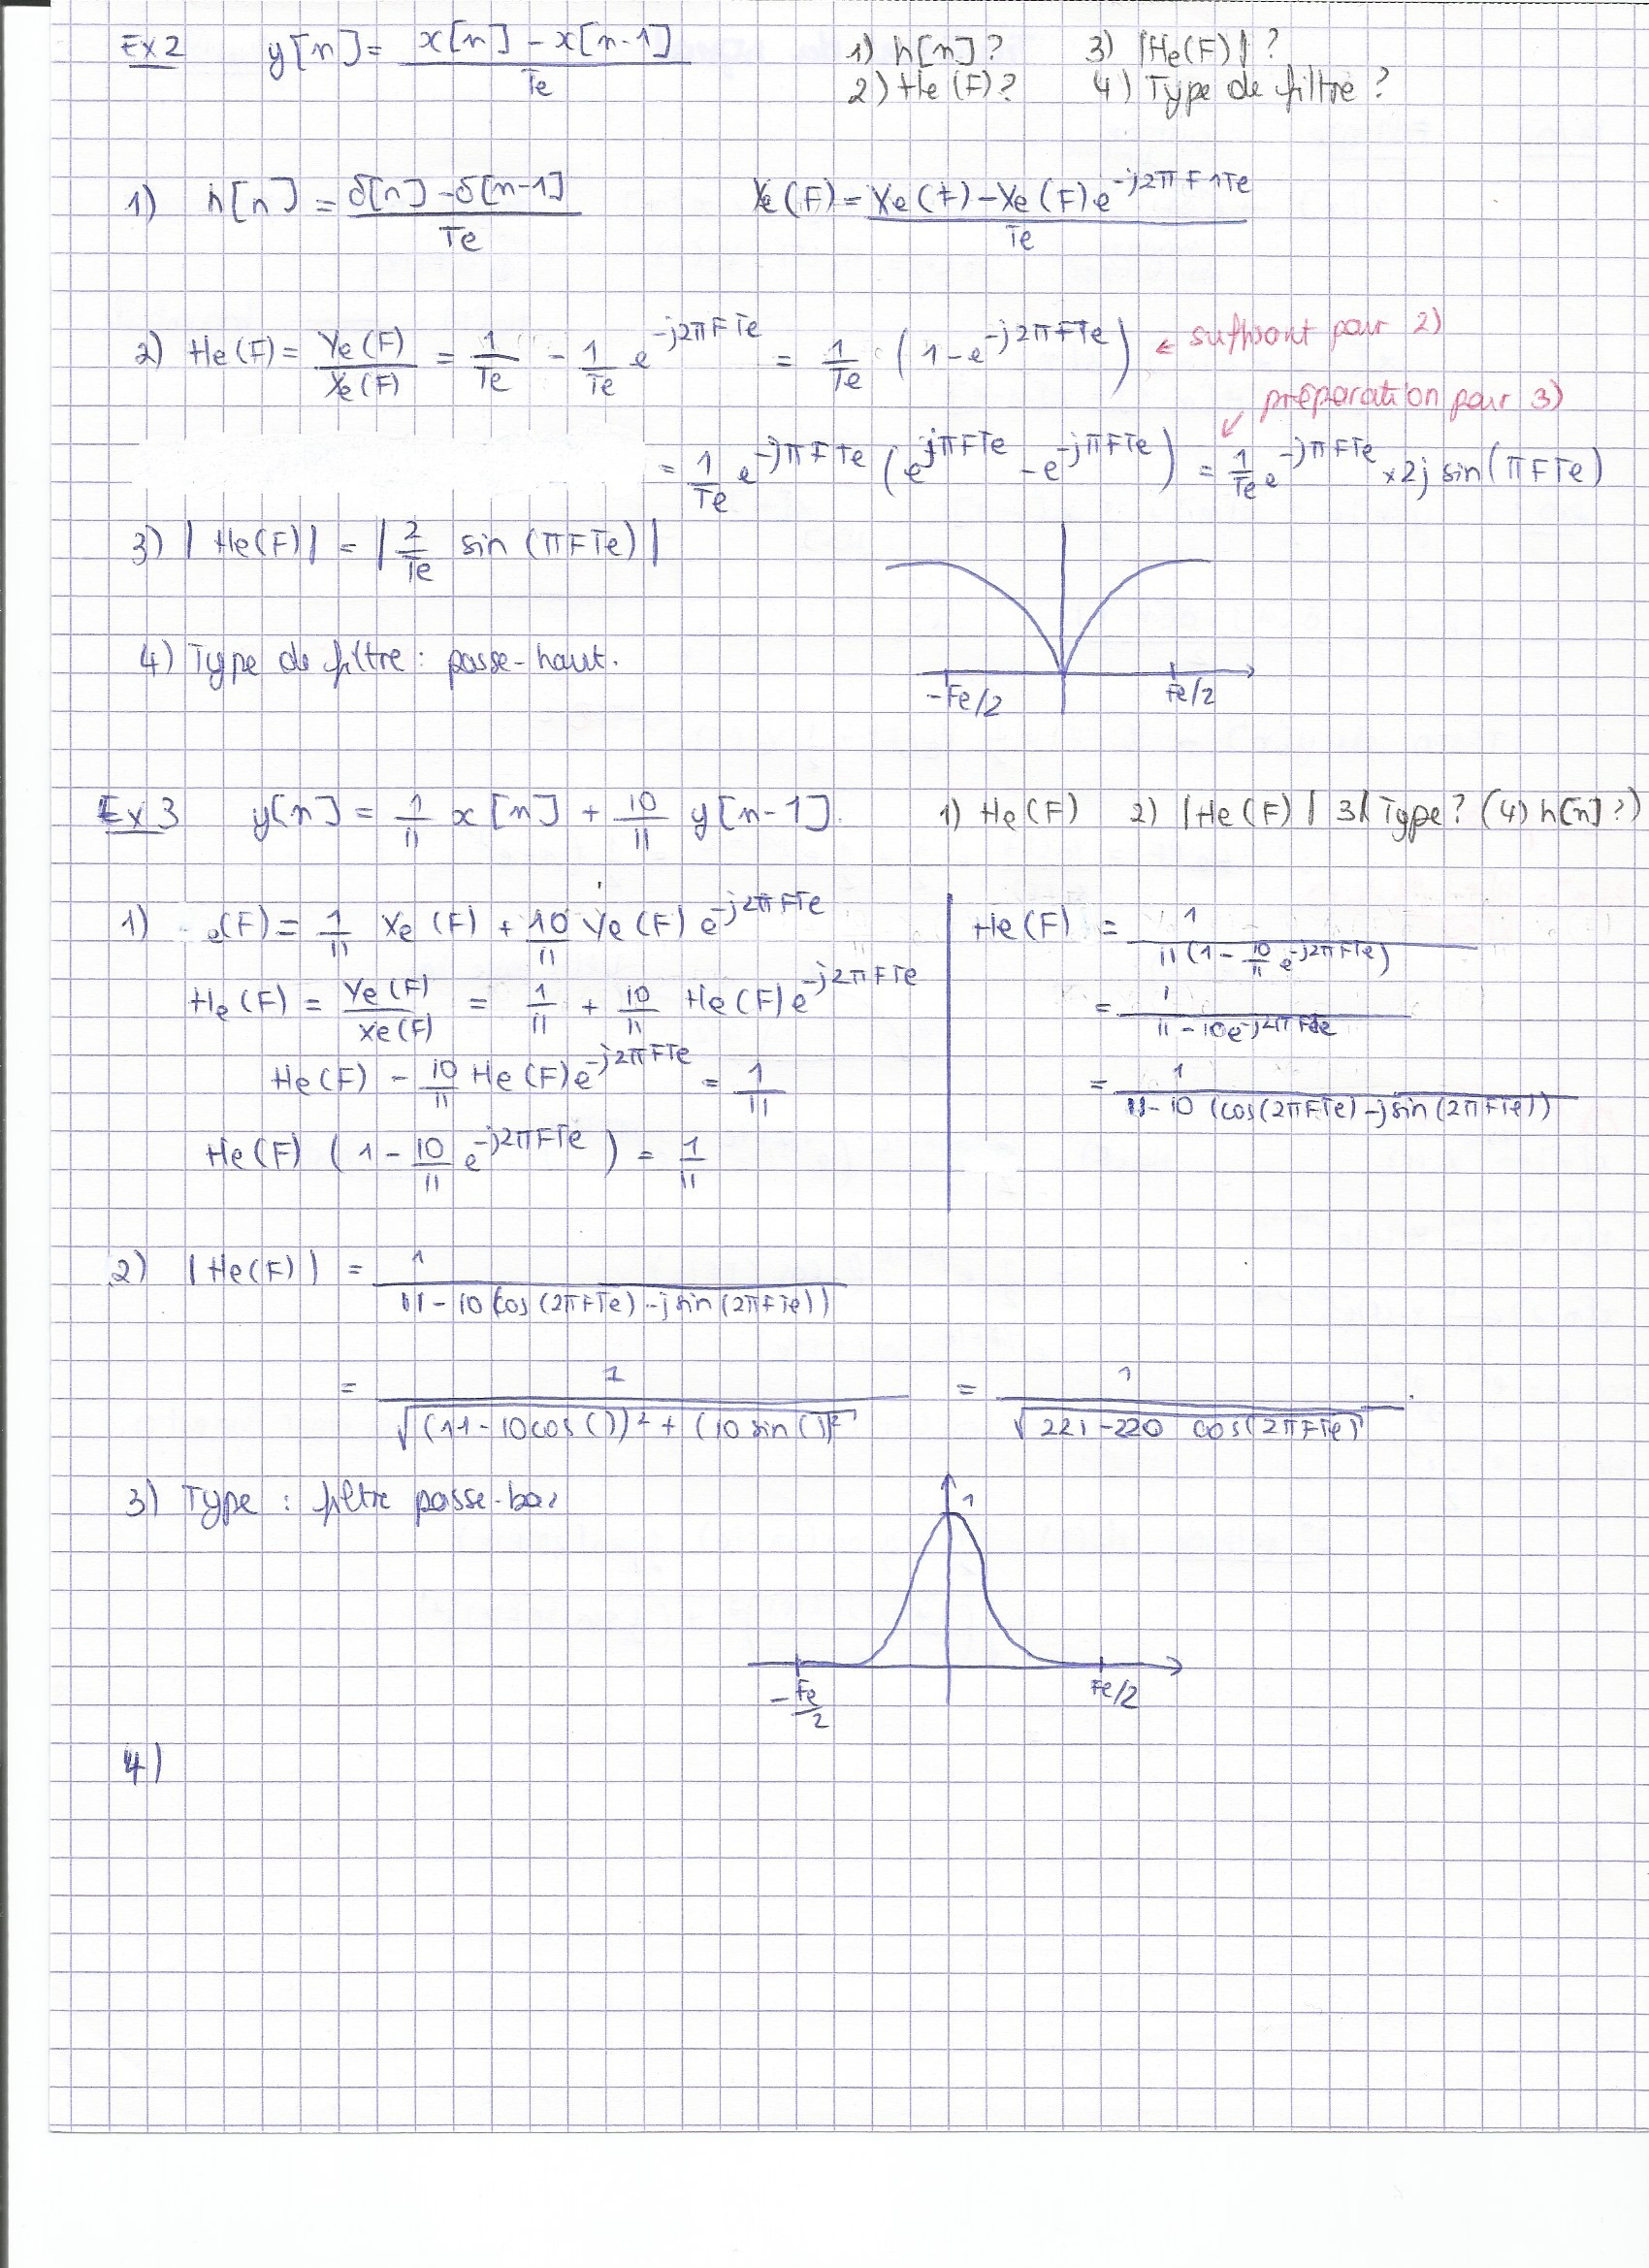 Ex 2 y[n] = (x[n] - x[n-1]) / Te 1) h[n] ? 3) |He(F)| ?
2) He (F) ? 4) Type de filtre ?
1) h[n] = (δ[n] - δ[n-1]) / Te Ye(F) = (Xe(f) - Xe(F) e^(-j2πF1Te)) / Te
2) He(F) = Ye(F) / Xe(F) = 1/Te - 1/Te e^(-j2πFTe) = 1/Te (1 - e^(-j2πFTe)) ← suffisant pour 2)
↙ préparation pour 3)
= 1/Te e^(-jπFTe) (e^(jπFTe) - e^(-jπFTe)) = 1/Te e^(-jπFTe) × 2j sin(πFTe)
3) |He(F)| = |2/Te sin (πFTe)|
4) Type de filtre : passe-haut.
-Fe/2 Fe/2
Ex 3 y[n] = 1/11 x[n] + 10/11 y[n-1]. 1) He(F) 2) |He(F)| 3) Type ? (4) h[n] ?)
1) e(F) = 1/11 Xe (F) + 10/11 Ye(F) e^(-j2πFTe)
He(F) = Ye(F) / Xe(F) = 1/11 + 10/11 He(F) e^(-j2πFTe)
He(F) - 10/11 He(F) e^(-j2πFTe) = 1/11
He(F) (1 - 10/11 e^(-j2πFTe)) = 1/11
He(F) = 1 / 11(1 - 10/11 e^(-j2πFTe))
= 1 / 11 - 10e^(-j2πFTe)
= 1 / 11 - 10 (cos(2πFTe) - j sin(2πFTe))
2) |He(F)| = 1 / 11 - 10(cos(2πFTe) - j sin(2πFTe))
= 1 / √((11 - 10cos())² + (10 sin())² = 1 / √(221 - 220 cos(2πFTe)) .
3) Type : filtre passe-bas
1
-Fe/2 Fe/2
4)